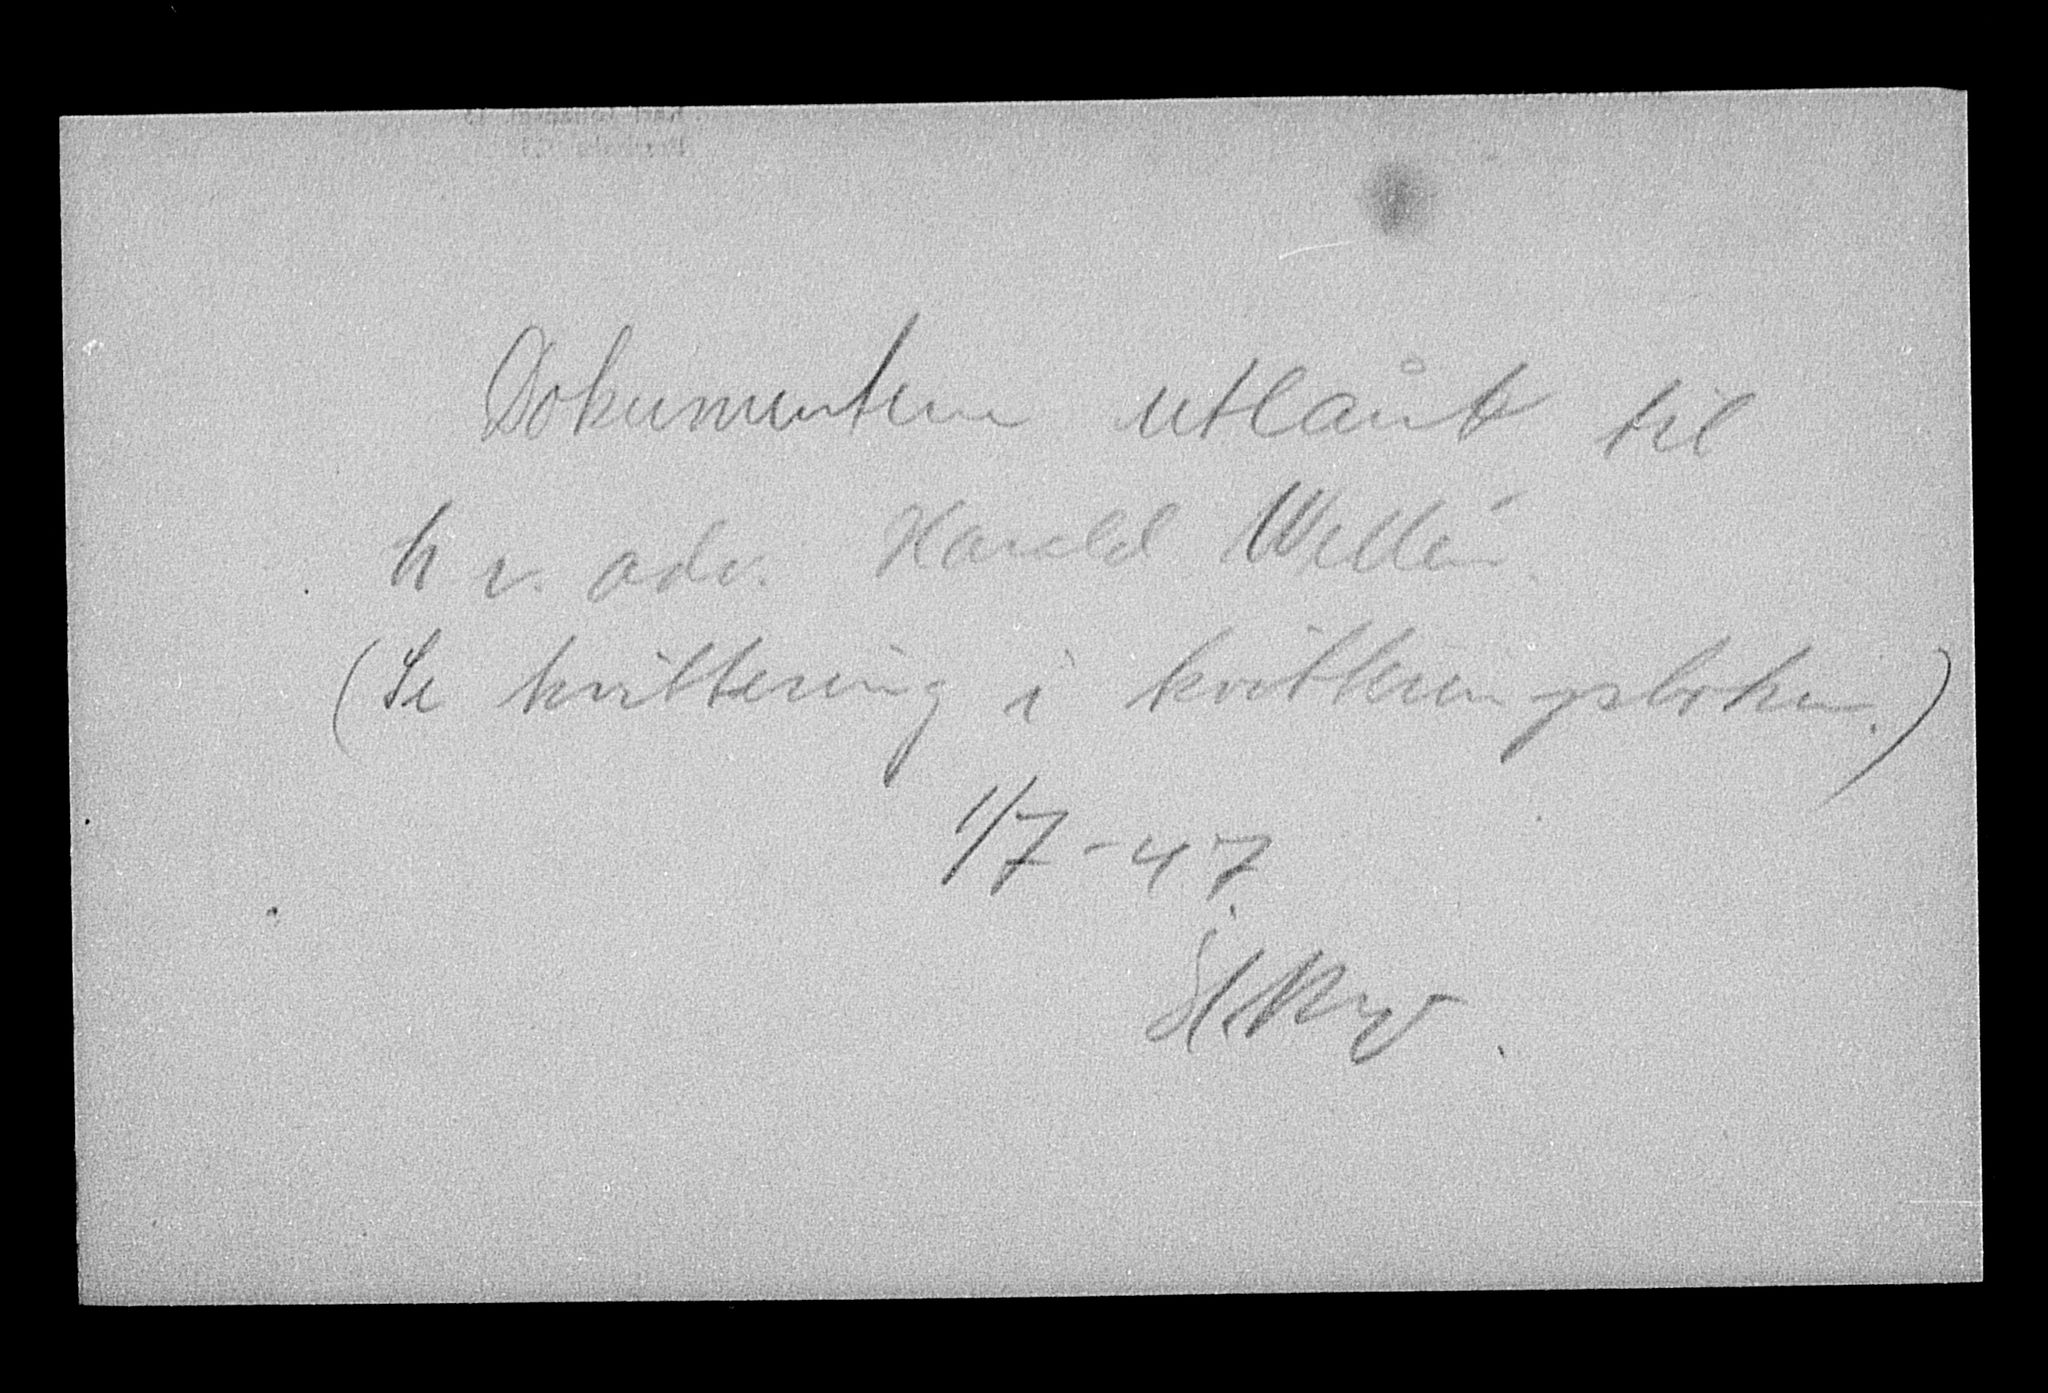 Dokumentene utlånt til
h r. adv. Harald
(Se kvittering i kvitteringsboken.)
1/7-47.